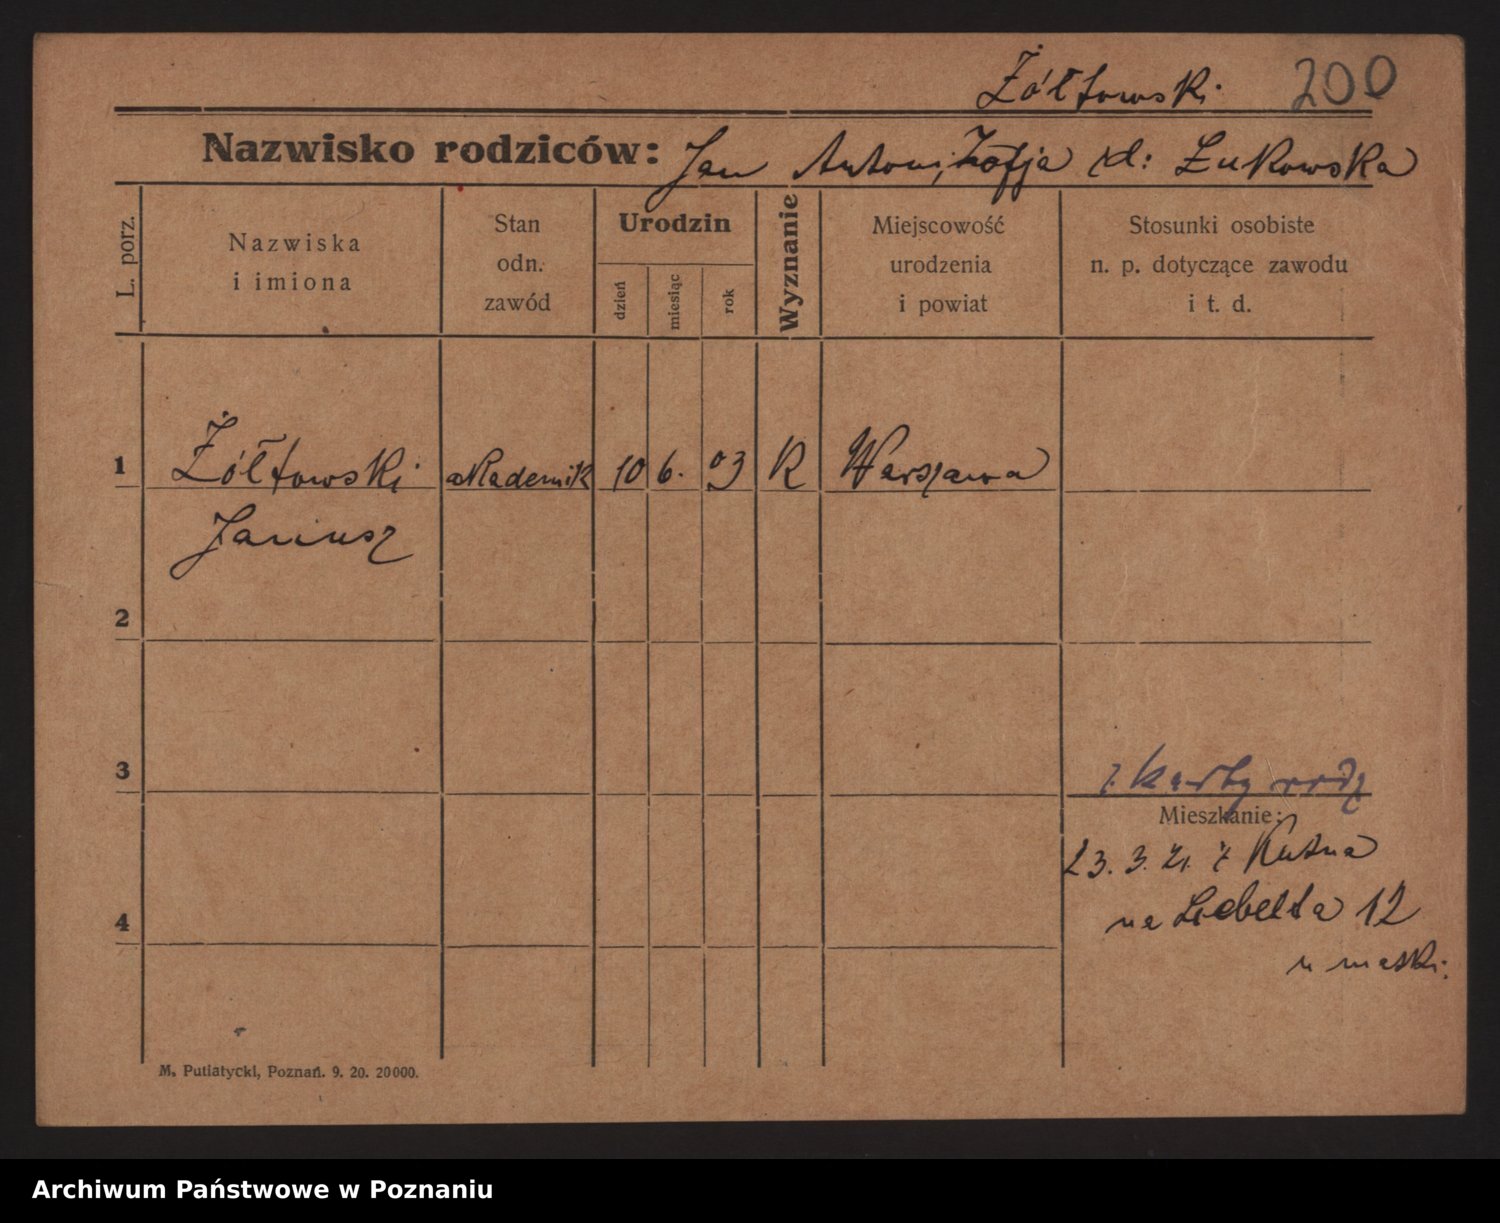 Żółtowski 200
Nazwisko rodziców: Jan Antoni, Zofja d: Łukowska
L. porz.
Nazwiska
i imiona
Stan
odn.
zawód
Urodzin
dzień
miesiąc
rok
Wyznanie
Miejscowość
urodzenia
i powiat
Stosunki osobiste
n. p. dotyczące zawodu
i t. d.
1 Żółtowski akademik 10 6. 03 K Warszawa
Janusz
2
3
z karty rodz
Mieszkanie:
23. 3. 21. z Kutna
na Libelta 12
4
M. Putiatycki, Poznań. 9. 20. 20000.
Archiwum Państwowe w Poznaniu